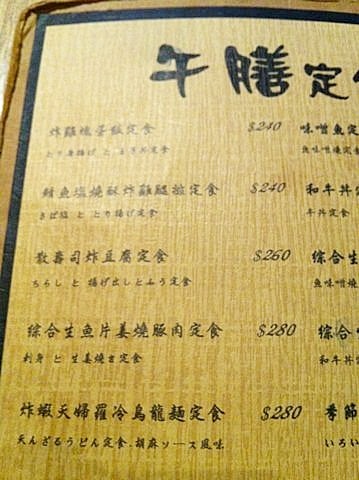 午膳定
炸雞塊蛋飯定食 $240
とり身揚げ と 玉子丼定食
鯖魚塩燒酥炸雞腿拉定食 $240
さば塩 と とり揚げ定食
散壽司炸豆腐定食 $260
ちらし と 揚げ出しとふう定食
綜合生魚片姜燒豚肉定食 $280
刺身 と 生姜燒き定食
炸蝦天婦羅冷烏龍麵定食 $280
天んざるうどん定食.胡麻ソース風味
味噌魚定
魚味噌燒定食
和牛丼定
牛丼定食
綜合生
魚味噌燒
綜合
和牛丼
季節
いろい